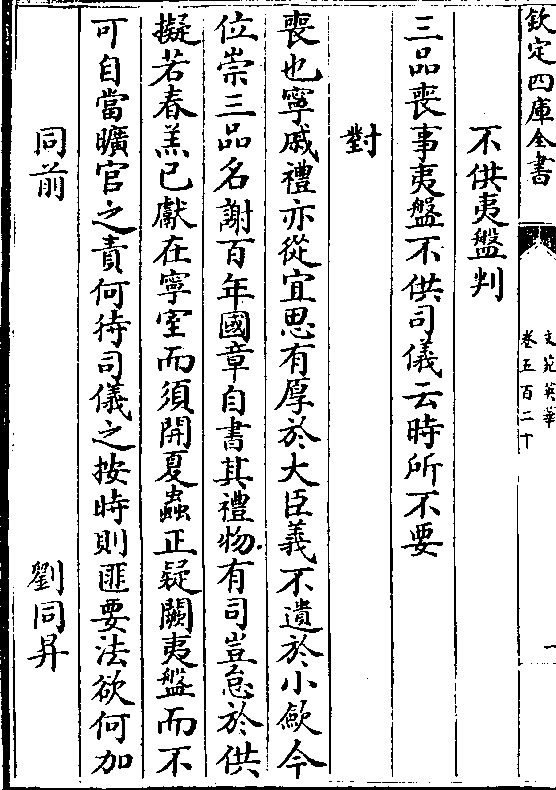 欽定四庫全書
文苑英華
卷五百二十
一
不供夷盤判
三品喪事夷盤不供司儀云時所不要
對
喪也寧戚禮亦從宜思有厚於大臣義不遺於小斂今
位崇三品名謝百年國章自書其禮物有司豈怠於供
擬若春羔已獻在寧室而須開夏蟲正疑闕夷盤而不
可自當曠官之責何待司儀之按時則匪要法欲何加
同前
劉同昇